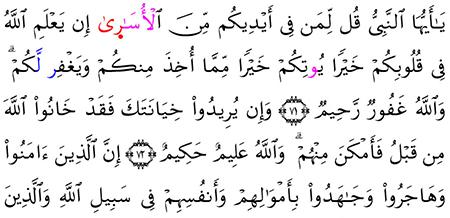 يَٰٓأَيُّهَا ٱلنَّبِيُّ قُل لِّمَن فِي أَيْدِيكُم مِّنَ ٱلْأُسَٰرىٰ إِن يَعْلَمِ ٱللَّهُ
فِي قُلُوبِكُمْ خَيْرًا يُوتِكُمْ خَيْرًا مِّمَّا أُخِذَ مِنكُمْ وَيَغْفِر لَّكُمْۗ
وَٱللَّهُ غَفُورٌ رَّحِيمٌ ﴿٧١﴾ وَإِن يُرِيدُوا۟ خِيَانَتَكَ فَقَدْ خَانُوا۟ ٱللَّهَ
مِن قَبْلُ فَأَمْكَنَ مِنْهُمْۗ وَٱللَّهُ عَلِيمٌ حَكِيمٌ ﴿٧٢﴾ إِنَّ ٱلَّذِينَ ءَامَنُوا۟
وَهَاجَرُوا۟ وَجَٰهَدُوا۟ بِأَمْوَٰلِهِمْ وَأَنفُسِهِمْ فِي سَبِيلِ ٱللَّهِ وَٱلَّذِينَ